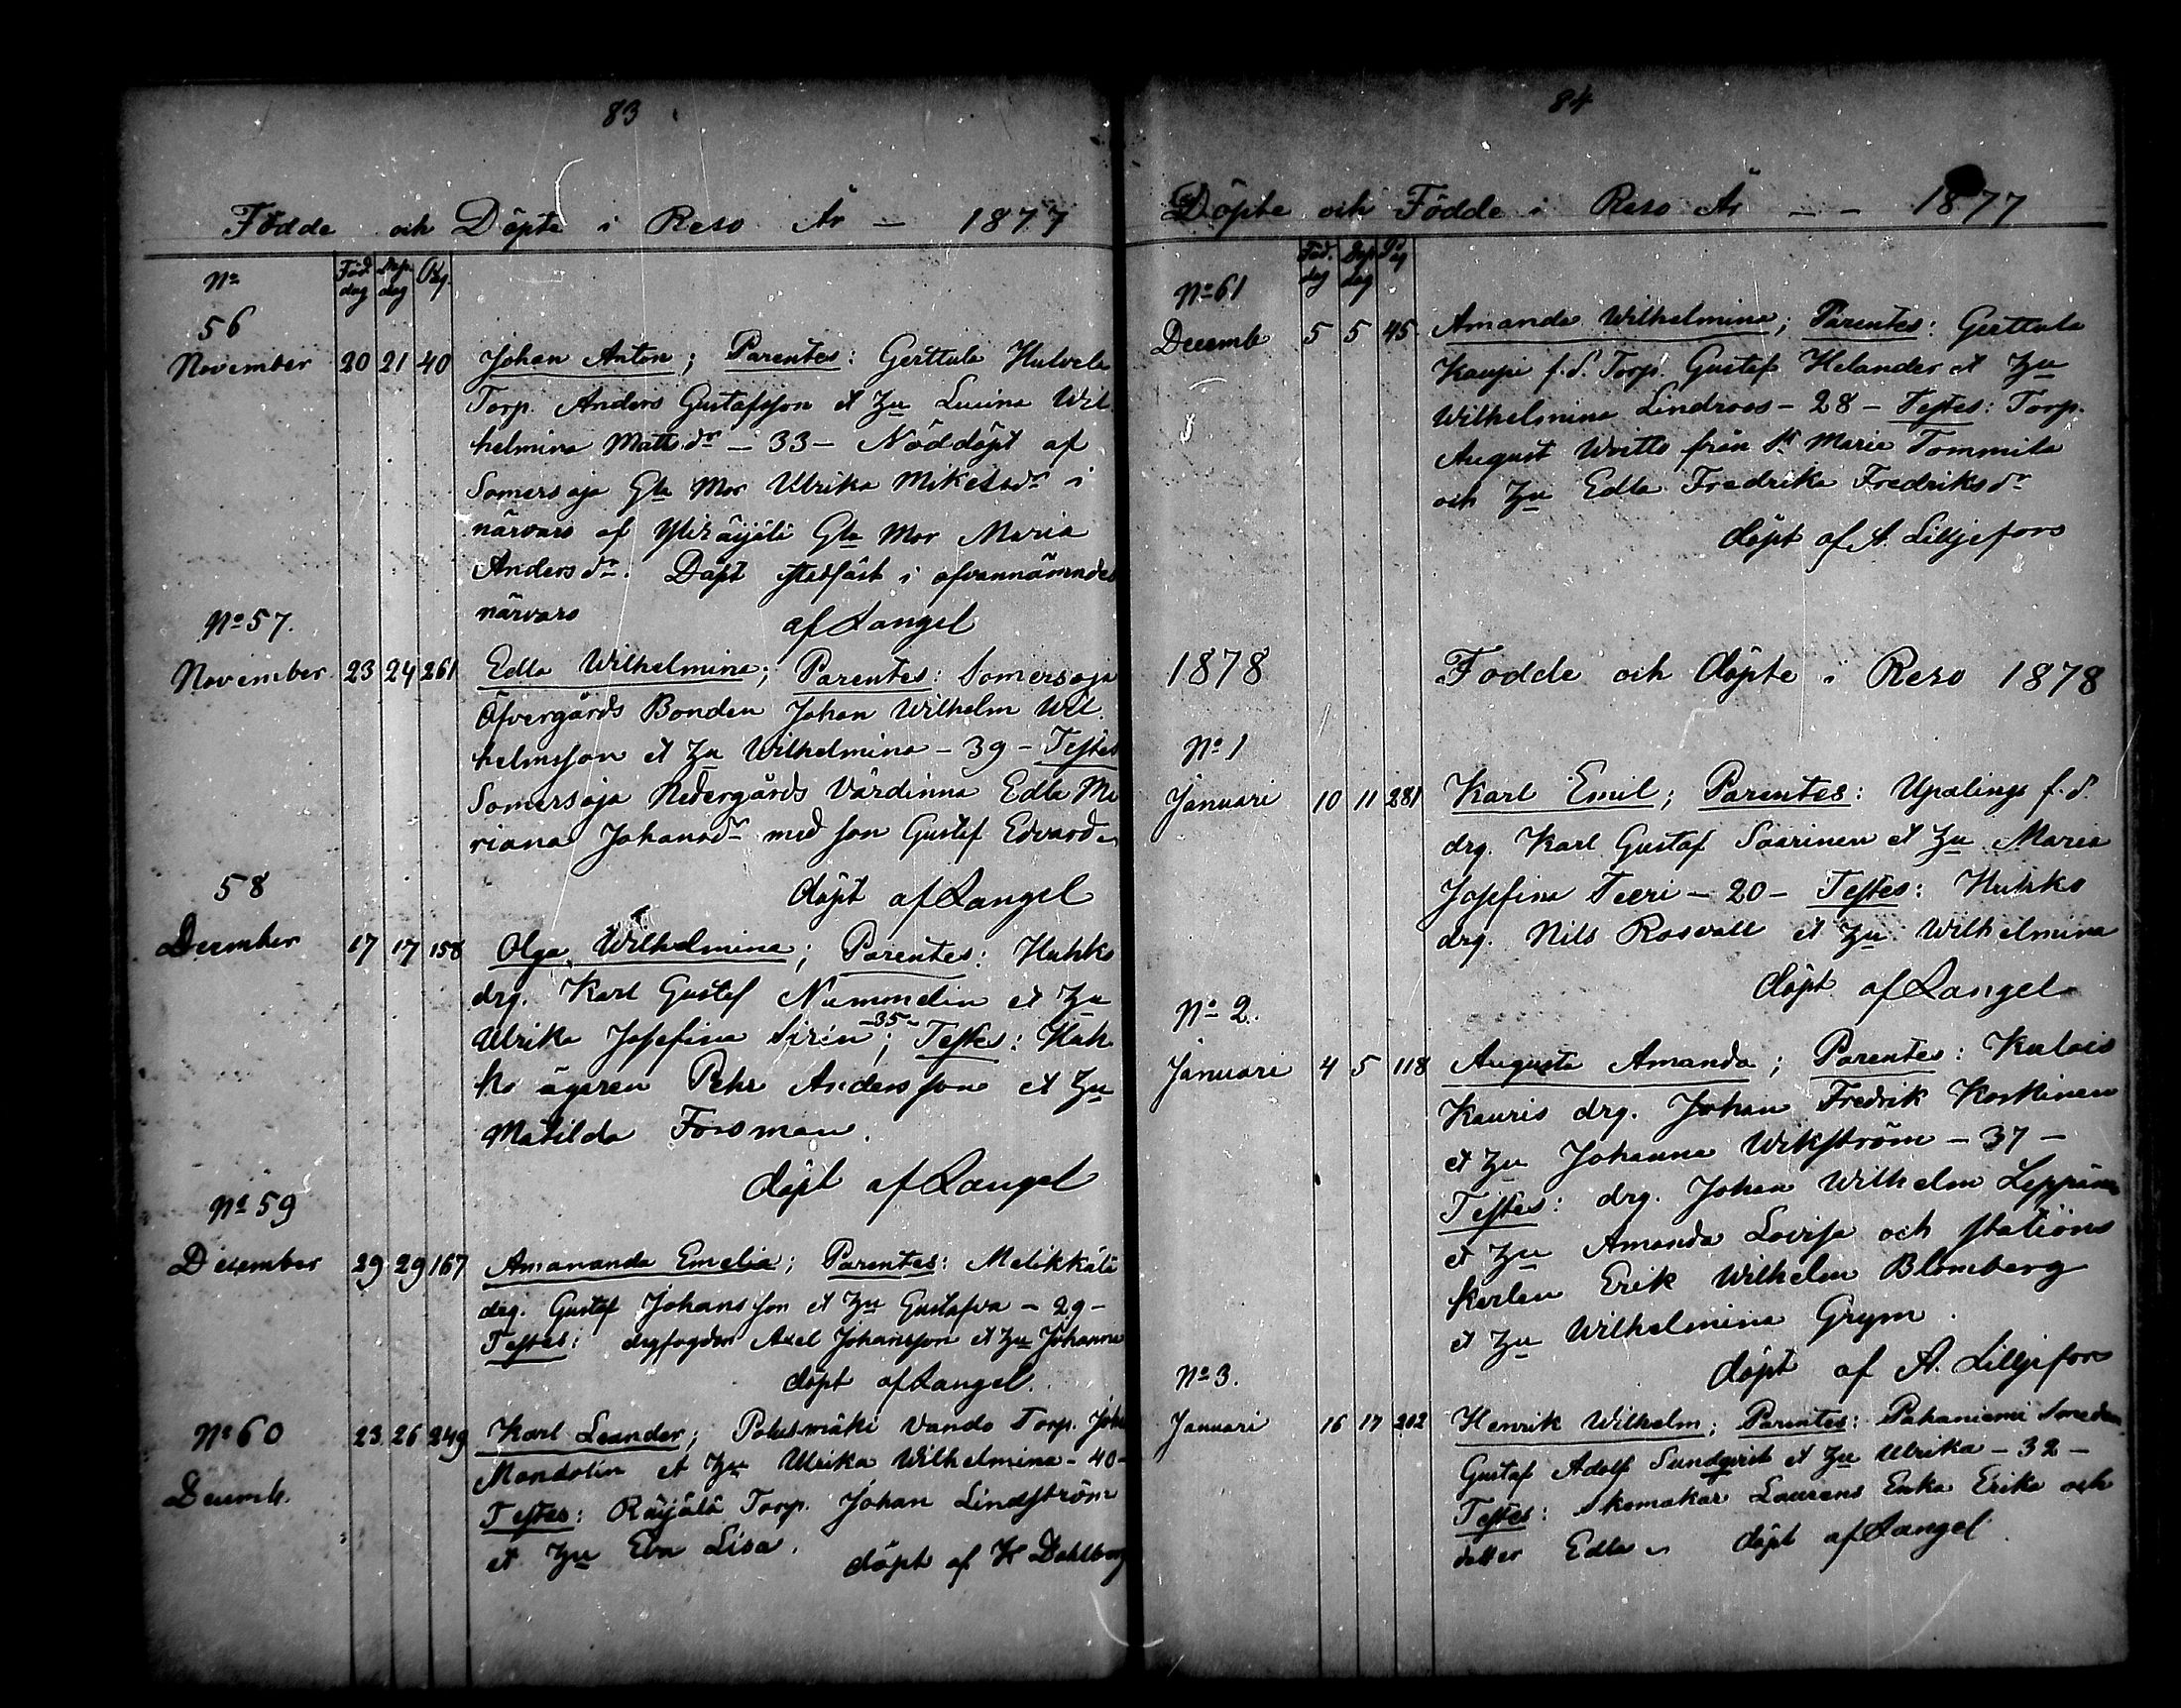 83
Födde och Döpte i Reso År – 1877
No Föd. dag Döp. dag Pag.
56
November 20 21 40 Johan Anton; Parentes: Gerttula Hulvela
Torp. Anders Gustafsson et Hu Lovina Wil
helmina Mattsdr – 33 – Nöddöpt af
Somersoja Gla Mor Ulrika Mikelsdr i
närvaro af Yliräyälä Gla Mor Maria
Andersdr. Döpt stadfäst i ofvannämndes
No 57. närvaro af Langel
November 23 24 261 Edla Wilhelmina; Parentes: Somersoja
Öfvergårds Bonden Johan Wilhelm Wil
helmsson et Hu Wilhelmina – 39 – Testes
Somersoja Nedergårds Värdinna Edla Ma
riana Johansdr med son Gustaf Edvard
58 döpt af Langel
December 17 17 158 Olga Wilhelmina; Parentes: Huhko
drg. Karl Gustaf Nummelin et Hu
Ulrika Josefina Sirén – 35 –; Testes: Huh
ko ägaren Pehr Andersson et Hu
Matilda Forsman.
döpt af Langel
No 59
December 29 29 167 Amananda Emelia; Parentes: Metikkälä
drg. Gustaf Johansson et Hu Gustafva – 29 –
Testes: drgfogden Axel Johansson et Hu Johanna
döpt af Langel.
No 60 23 26 249 Karl Leander; Pohusmäki Vando Torp. Joh
Decemb. Mandolin et Hu Ulrika Wilhelmina – 40 –
Testes: Räyälä Torp. Johan Lindström
et Hu Eva Lisa. döpt af K Dahlberg
84
Döpte och Födde i Reso År – – 1877
No 61 Föd. dag Döp. dag Pag
Decemb 5 5 45 Amanda Wilhelmina; Parentes: Gerttula
Kaupi f.d. Torp. Gustaf Helander et Hu
Wilhelmina Lindroos – 28 – Testes: Torp.
August Writto från St Marie Tommila
och Hu Edla Fredrika Fredriksdr
döpt af A. Lilljefors
1878 Fodde och döpte i Reso 1878
No 1
Januari 10 11 281 Karl Emil; Parentes: Upalinge f.d.
drg. Karl Gustaf Saarinen et Hu Maria
Josefina Teeri – 20 – Testes: Huhko
drg. Nils Rosvall et Hu Wilhelmina
döpt af Langel
No 2.
Januari 4 5 118 Augusta Amanda; Parentes: Kulois
Kauris drg. Johan Fredrik Koskinen
et Hu Johanna Wikström – 37 –
Testes: drg. Johan Wilhelm Leppäne
et Hu Amanda Lovisa och stations
karlen Erik Wilhelm Blomberg
et Hu Wilhelmina Grym.
No 3. döpt af A. Lilljefors
Januari 16 17 202 Henrik Wilhelm; Parentes: Pahaniemi Smeden
Gustaf Adolf Sundqvist et Hu Ulrika – 32 –
Testes: Skomakar Laurens Enka Erika och
dotter Edla döpt af Langel.